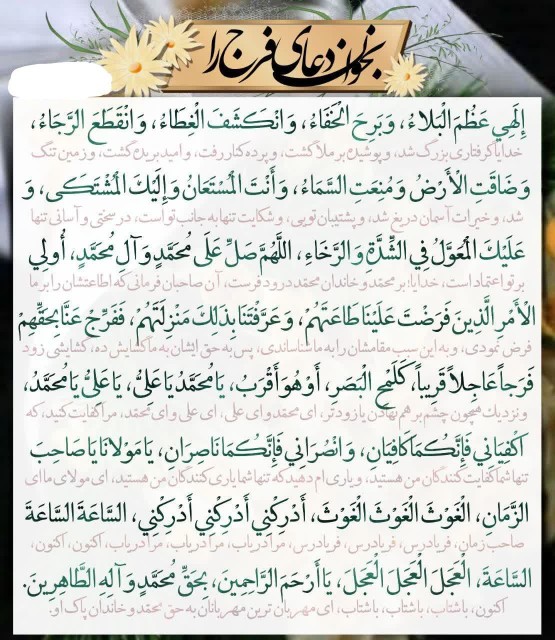 بخوان دعای فرج را
إِلَهِي عَظُمَ الْبَلاءُ، وَبَرِحَ الْخَفَاءُ، وَانْكَشَفَ الْغِطَاءُ، وَانْقَطَعَ الرَّجَاءُ،
خدایا گرفتاری بزرگ شد، و پوشیده بر ملا گشت، و پرده کنار رفت، و امید بریده گشت، و زمین تنگ
وَضَاقَتِ الْأَرْضُ وَمُنِعَتِ السَّمَاءُ، وَأَنْتَ الْمُسْتَعَانُ وَإِلَيْكَ الْمُشْتَكَى، وَ
شد، و خیرات آسمان دریغ شد، و پشتیبان تویی، و شکایت تنها به جانب تو است، در سختی و آسانی تنها
عَلَيْكَ الْمُعَوَّلُ فِي الشِّدَّةِ وَالرَّخَاءِ، اللَّهُمَّ صَلِّ عَلَى مُحَمَّدٍ وَآلِ مُحَمَّدٍ، أُولِي
بر تو اعتماد است، خدایا: بر محمد و خاندان محمد درود فرست، آن صاحبان فرمانی که اطاعتشان را بر ما
الْأَمْرِ الَّذِينَ فَرَضْتَ عَلَيْنَا طَاعَتَهُمْ، وَعَرَّفْتَنَا بِذَلِكَ مَنْزِلَتَهُمْ، فَفَرِّجْ عَنَّا بِحَقِّهِمْ
فرض نمودی، و به این سبب مقامشان را به ما شناساندی، پس به حق ایشان به ما گشایش ده، گشایشی زود
فَرَجاً عَاجِلاً قَرِيباً، كَلَمْحِ الْبَصَرِ، أَوْ هُوَ أَقْرَبُ، يَا مُحَمَّدُ يَا عَلِيُّ، يَا عَلِيُّ يَا مُحَمَّدُ،
و نزدیک همچون چشم بر هم نهادن یا زودتر، ای محمد و ای علی، ای علی و ای محمد، مرا کفایت کنید، که
اكْفِيَانِي فَإِنَّكُمَا كَافِيَانِ، وَانْصُرَانِي فَإِنَّكُمَا نَاصِرَانِ، يَا مَوْلانَا يَا صَاحِبَ
تنها شما کفایت کنندگان من هستید، و یاری ام دهید که تنها شما یاری کنندگان من هستید، ای مولای ما ای
الزَّمَانِ، الْغَوْثَ الْغَوْثَ الْغَوْثَ، أَدْرِكْنِي أَدْرِكْنِي أَدْرِكْنِي، السَّاعَةَ السَّاعَةَ
صاحب زمان، فریادرس، فریادرس، فریادرس، مرا دریاب، مرا دریاب، مرا دریاب، اکنون، اکنون،
السَّاعَةَ، الْعَجَلَ الْعَجَلَ الْعَجَلَ، يَا أَرْحَمَ الرَّاحِمِينَ، بِحَقِّ مُحَمَّدٍ وَآلِهِ الطَّاهِرِينَ.
اکنون، باشتاب، باشتاب، باشتاب، ای مهربان ترین مهربانان به حق محمد و خاندان پاک او.